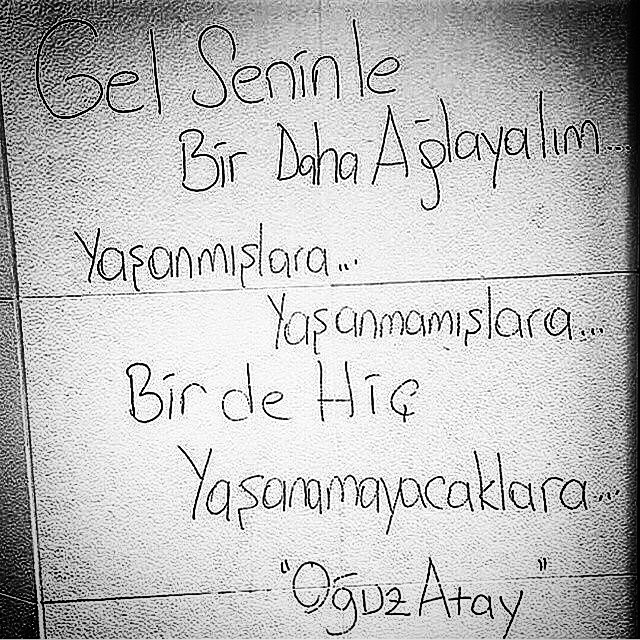 Gel Seninle
Bir Daha Ağlayalım...
Yaşanmışlara...
Yaşanmamışlara...
Bir de Hiç
Yaşanamayacaklara...
"Oğuz Atay"